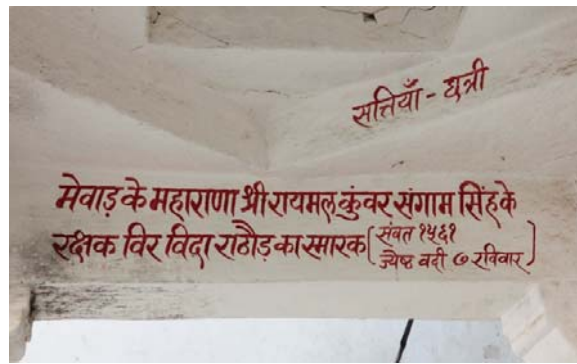 सत्तियाँ - छत्री
मेवाड़ के महाराणा श्री रायमल कुंवर संगाम सिंह के
रक्षक विर विदा राठौड़ का स्मारक (संबत १५६१
ज्यैष्ठ वदी ७ रविवार)